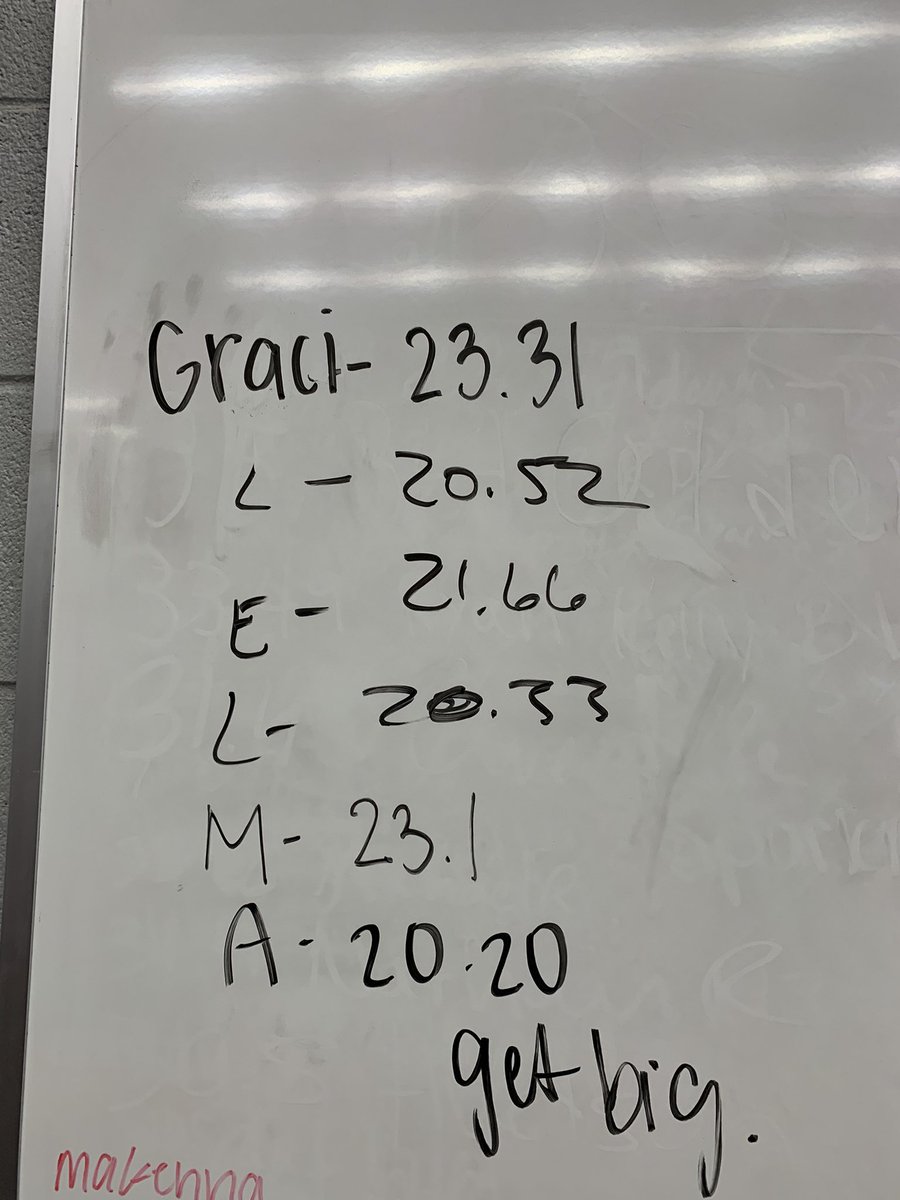 Graci- 23.31
L - 20.52
E - 21.66
L- 20.33
M- 23.1
A- 20.20
get big.
makenna